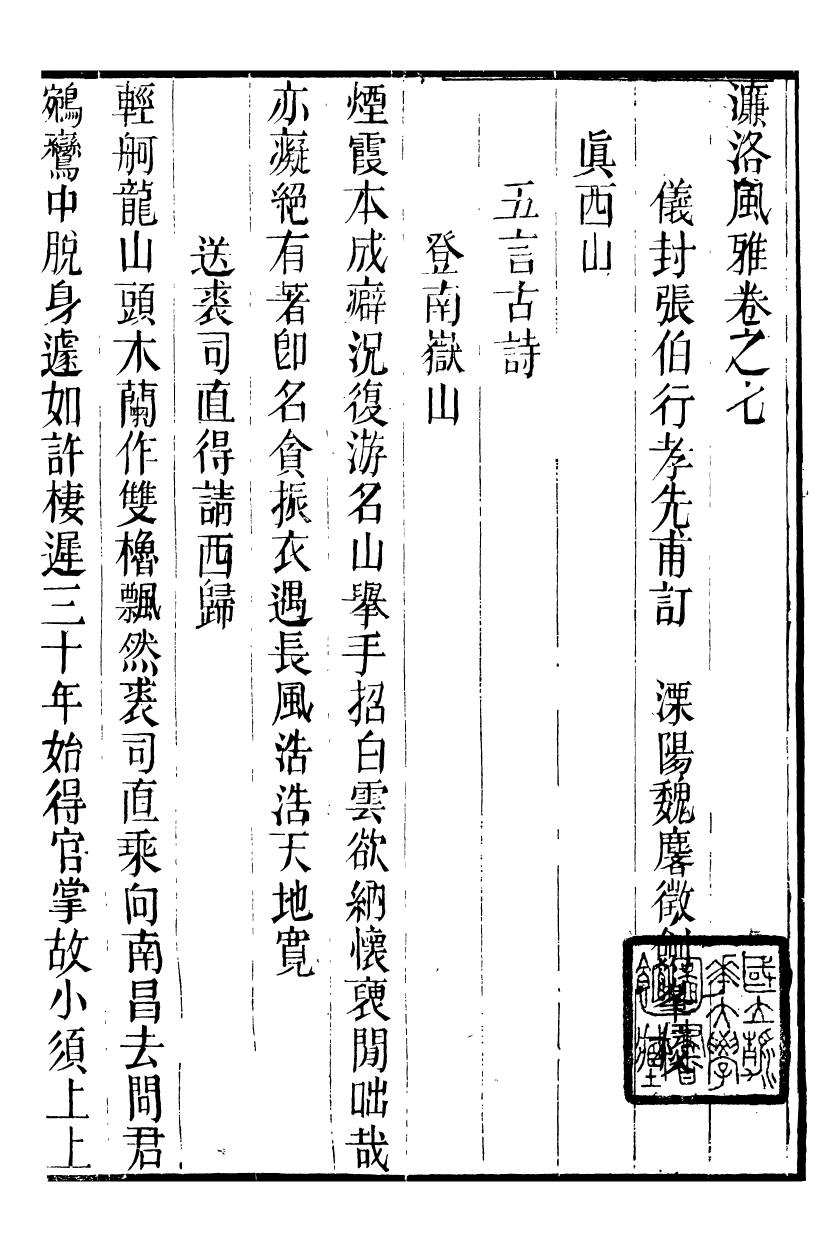 濂洛風雅卷之七
儀封張伯行孝先甫訂　溧陽魏麐徵
眞西山
五言古詩
登南嶽山
煙霞本成癖況復游名山舉手招白雲欲納懷裏閒咄哉
亦癡絕有著卽名貪振衣遇長風浩浩天地寬
送裘司直得請西歸
輕舸龍山頭木蘭作雙櫓飄然裘司直乘向南昌去問君
鵷鸞中脫身遽如許棲遲三十年始得官掌故小須上上
國立清華大學
圖書館藏